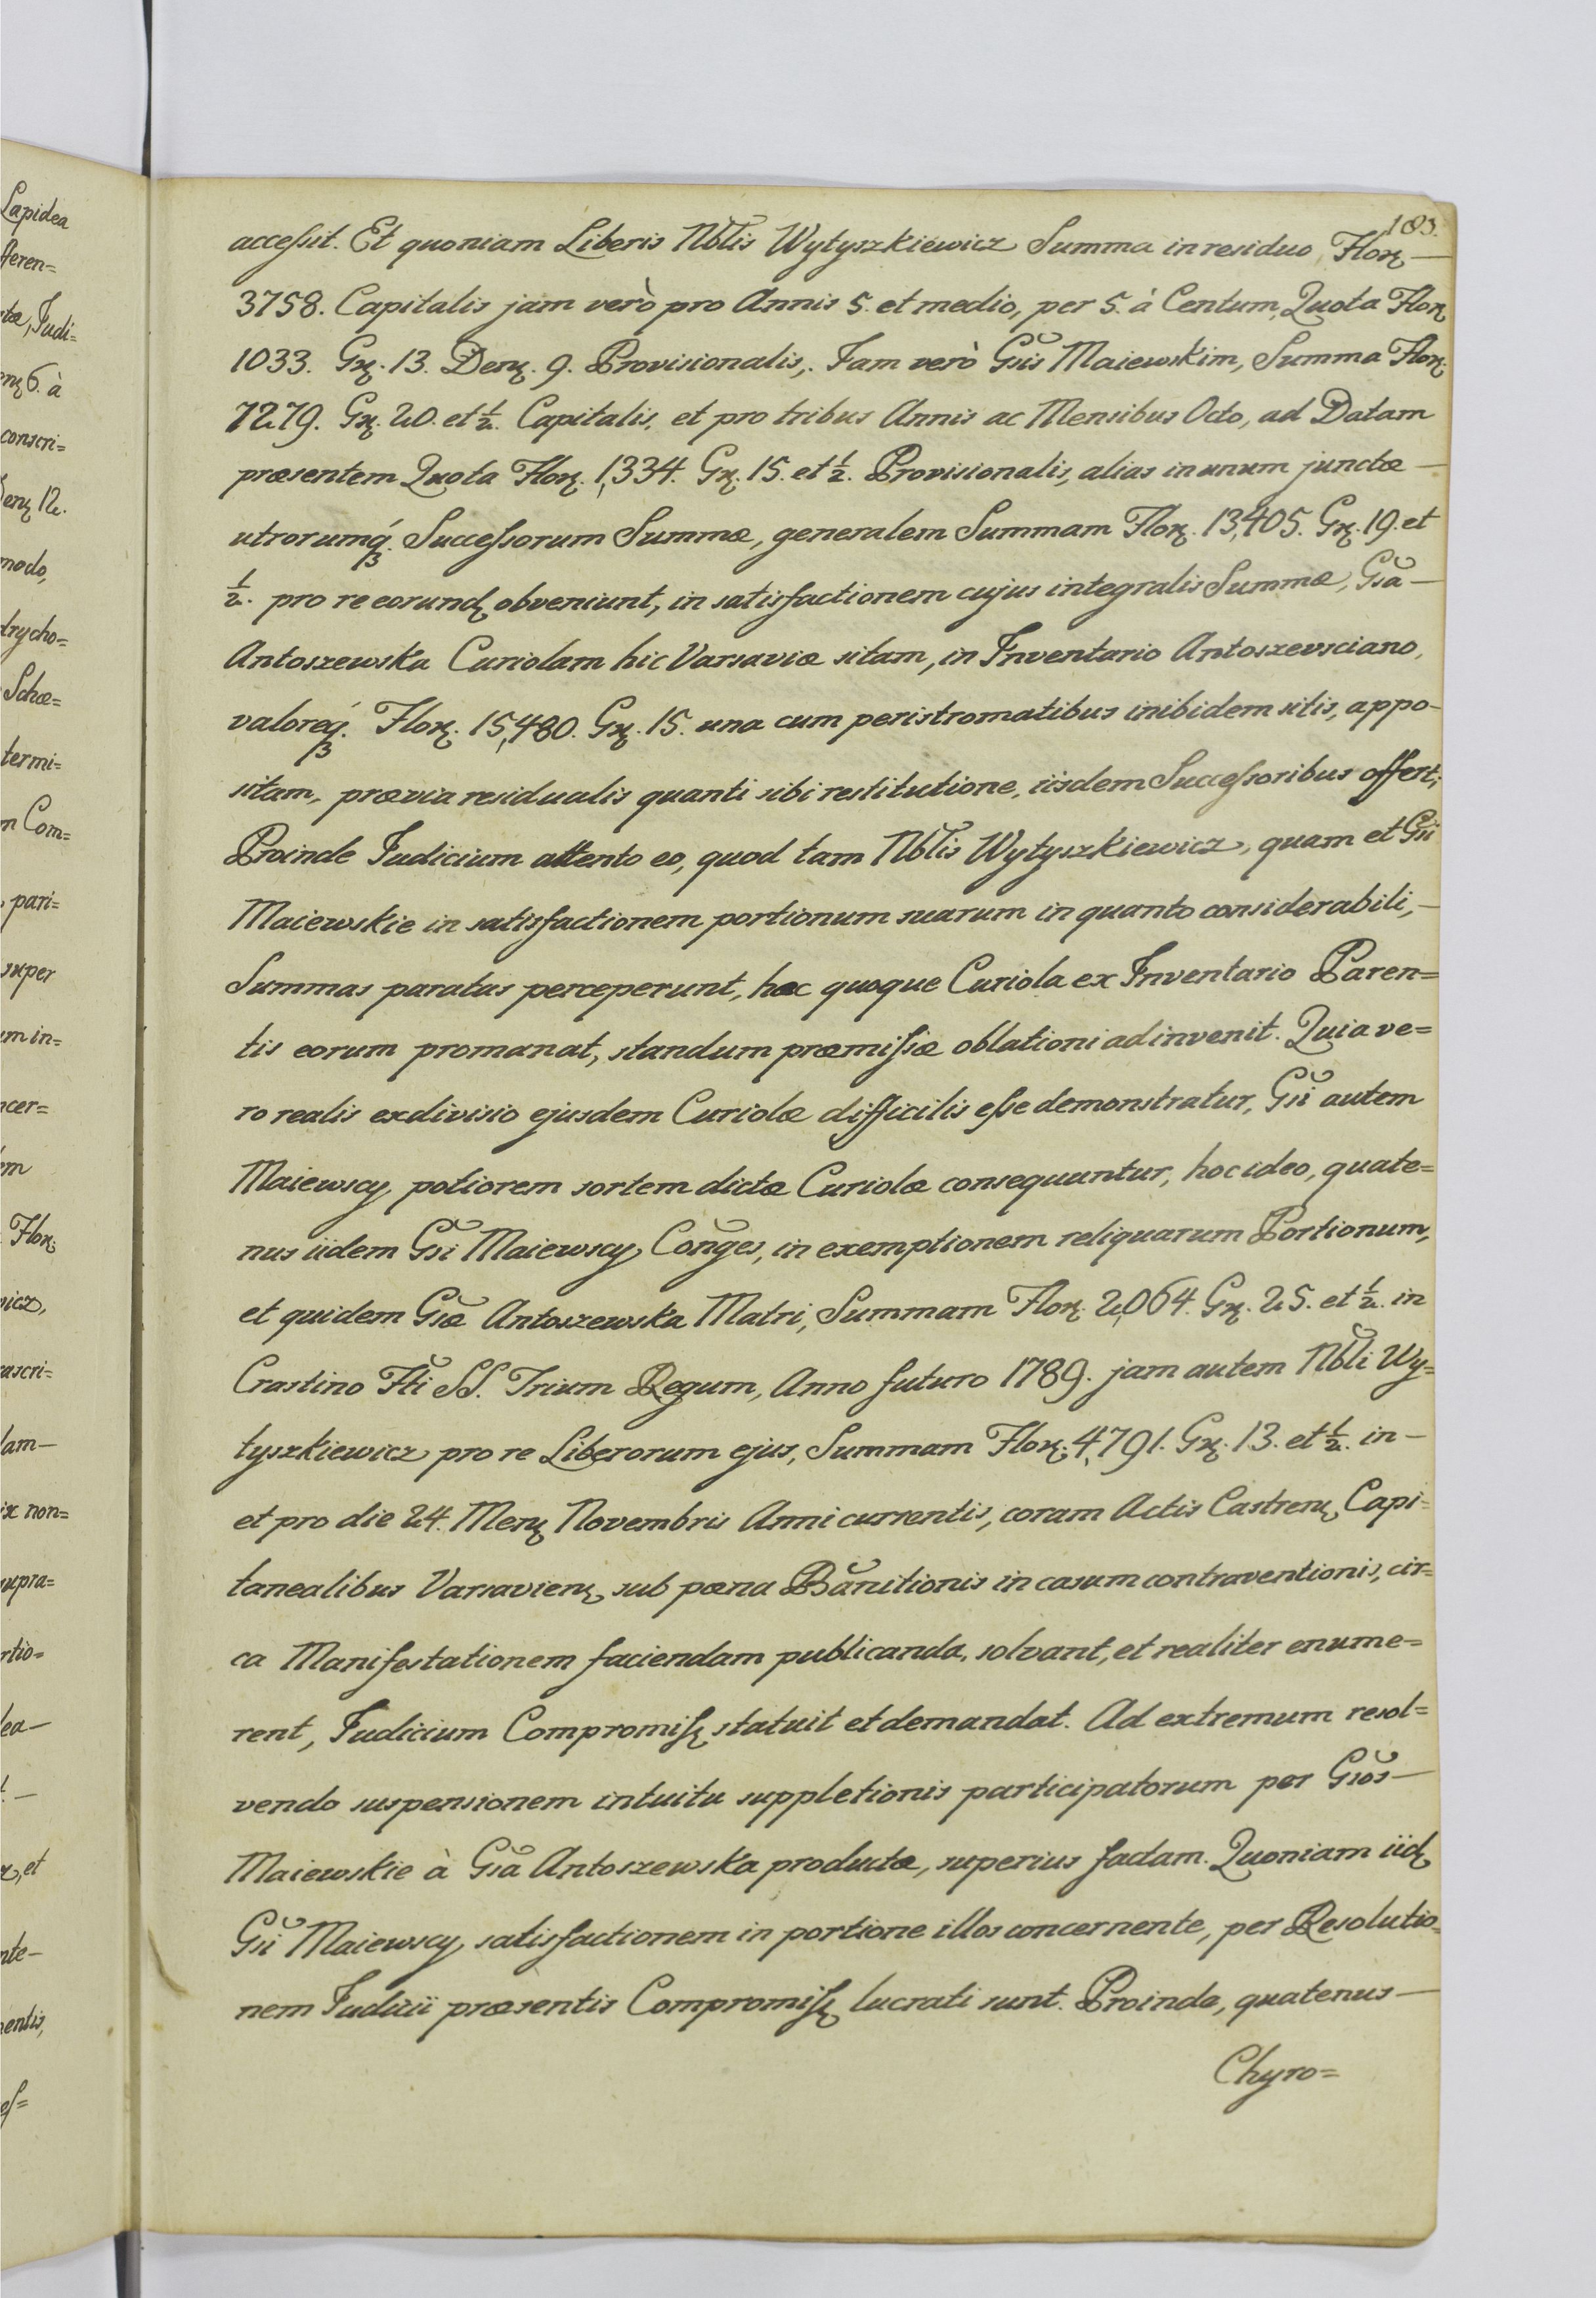 183.
accessit. Et quoniam Liberis Nblis Wytyszkiewicz Summa in residuo Flor.
3758. Capitalis jam verò pro Annis 5. et medio, per 5. à Centum, Quota Flor.
1033. Gr. 13. Den. 9. Provisionalis,. Jam verò Gsis Maiewskim, Summa Flor.
7279. Gr. 20. et ½. Capitalis, et pro tribus Annis ac Mensibus Octo, ad Datam
præsentem Quota Flor. 1,334. Gr. 15. et ½. Provisionalis, alias in unum junctæ —
utrorumq́. Successorum Summæ, generalem Summam Flor. 13,405. Gr. 19. et
½. pro re eorund. obveniunt, in satisfactionem cujus integralis Summæ, Gsa —
Antoszewska Curiolam hic Varsaviæ sitam, in Inventario Antoszevsciano,
valoreq́. Flor. 15,480. Gr. 15. una cum peristromatibus inibidem sitis, appo-
sitam, prævia residualis quanti sibi restitutione, iisdem Successoribus offert;
Proinde Judicium attento eo, quod tam Nblis Wytyszkiewicz, quam et Gsi
Maiewskie in satisfactionem portionum suarum in quanto considerabili, —
Summas paratas perceperunt, hæc quoque Curiola ex Inventario Paren=
tis eorum promanat, standum præmissæ oblationi adinvenit. Quia ve=
ro realis exdivisio ejusdem Curiolæ difficilis esse demonstratur, Gsi autem
Maiewscy potiorem sortem dictæ Curiolæ consequuntur, hoc ideo, quate=
nus iidem Gsi Maiewscy Conges, in exemptionem reliquarum Portionum,
et quidem Gsæ Antoszewska Matri, Summam Flor. 2,064. Gr. 25. et ½. in
Crastino Fti SS. Trium Regum, Anno futuro 1789. jam autem Nbli Wy=
tyszkiewicz pro re Liberorum ejus, Summam Flor. 4,791. Gr. 13. et ½. in —
et pro die 24. Mens. Novembris Anni currentis, coram Actis Castren. Capi=
tanealibus Varsavien. sub pæna Banitionis in casum contraventionis, cir=
ca Manifestationem faciendam publicanda, solvant, et realiter enume=
rent, Judicium Compromiss. statuit et demandat. Ad extremum resol=
vendo suspensionem intuitu suppletionis participatorum per Gsos —
Maiewskie à Gsa Antoszewska productæ, superius factam. Quoniam iid.
Gsi Maiewscy satisfactionem in portione illos concernente, per Resolutio=
nem Judicii præsentis Compromiss. lucrati sunt. Proinde, quatenus —
Chyro=